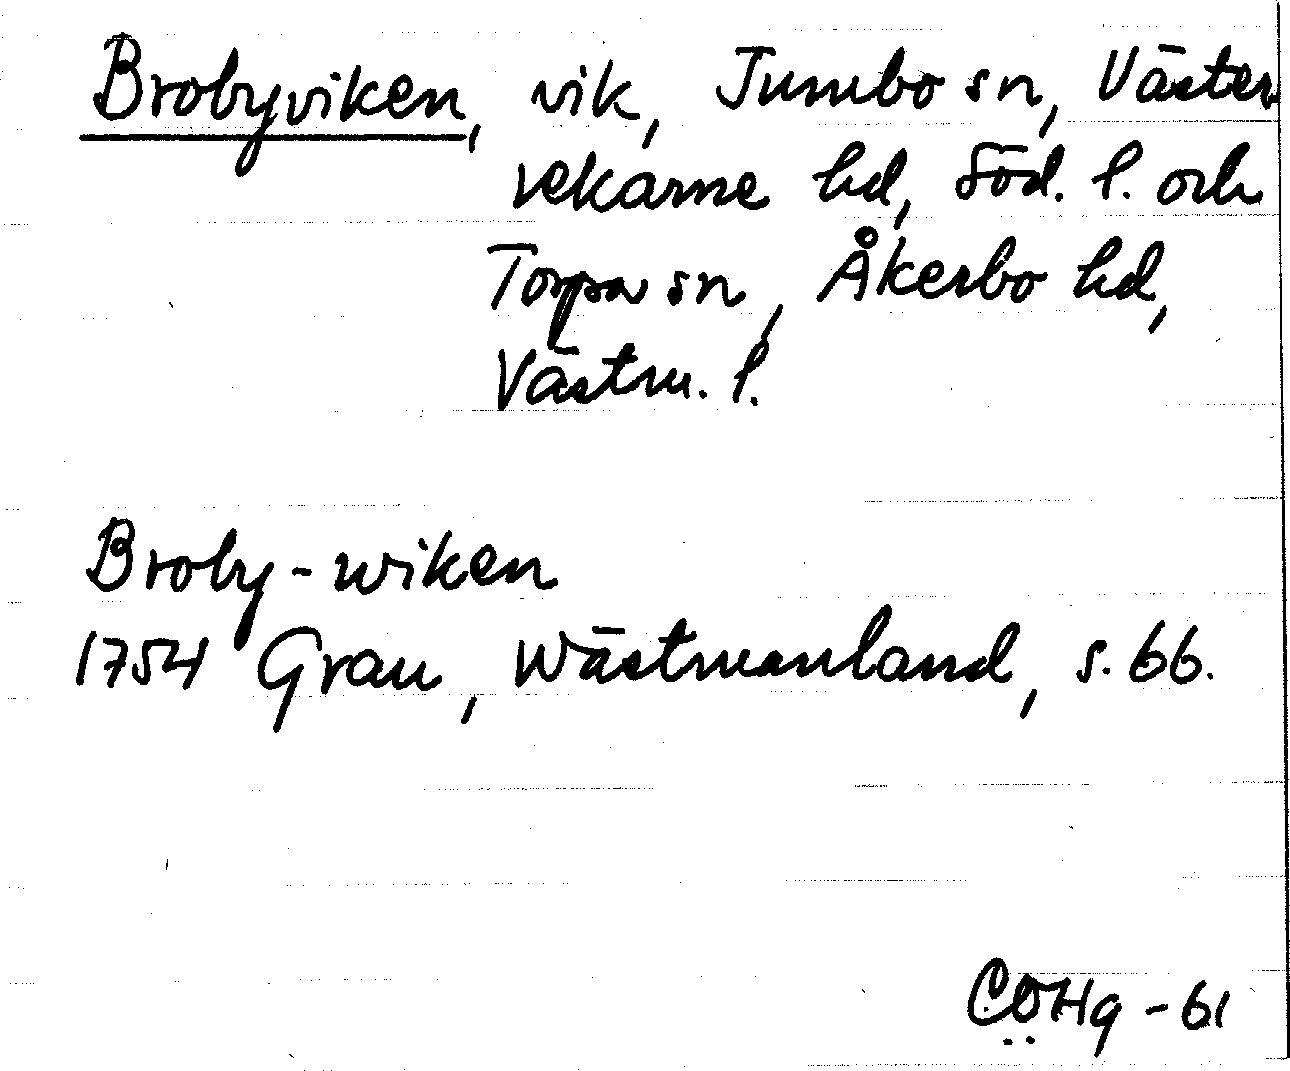 Brobyviken, vik, Jumbo sn, Väster-
rekarne hd, Söd. l. och
Torpa sn, Åkerbo hd,
Västm. l.
Broby-wiken
1754 Grau, Wästmanland, s. 66.
CÖHg -61